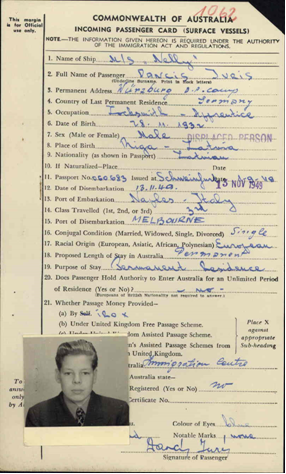 This margin
is for Official
use only.
1962
COMMONWEALTH OF AUSTRALIA
INCOMING PASSENGER CARD (SURFACE VESSELS)
NOTE.—THE INFORMATION GIVEN HEREON IS REQUIRED UNDER THE AUTHORITY
OF THE IMMIGRATION ACT AND REGULATIONS.
1. Name of Ship M/S "Nelly"
2. Full Name of Passenger
3. Permanent Address Würzburg D.P. camp
4. Country of Last Permanent Residence Germany
5. Occupation Locksmith Apprentice
6. Date of Birth 1932
7. Sex (Male or Female) Male DISPLACED PERSON
8. Place of Birth Riga - Latvia
9. Nationality (as shown in Passport) Latvian
10. If Naturalized—Place Date
11. Passport No. Issued at Schweinfurt
12. Date of Disembarkation 13.11.49 13 NOV 1949
13. Port of Embarkation Naples - Italy
14. Class Travelled (1st, 2nd, or 3rd) 3rd
15. Port of Disembarkation MELBOURNE
16. Conjugal Condition (Married, Widowed, Single, Divorced) Single
17. Racial Origin (European, Asiatic, African, Polynesian) European
18. Proposed Length of Stay in Australia Permanent
19. Purpose of Stay Permanent
20. Does Passenger Hold Authority to Enter Australia for an Unlimited Period
of Residence (Yes or No) no
(Europeans of British Nationality not required to answer.)
21. Whether Passage Money Provided—
(a) By Self.
(b) Under United Kingdom Free Passage Scheme.
Kingdom Assisted Passage Scheme.
Assisted Passage Schemes from
United Kingdom.
Place X
against
appropriate
Sub-heading
Australia Immigration Centre
Australia state—
Registered (Yes or No) no
Certificate No.
Colour of Eyes blue
Notable Marks none
Signature of Passenger